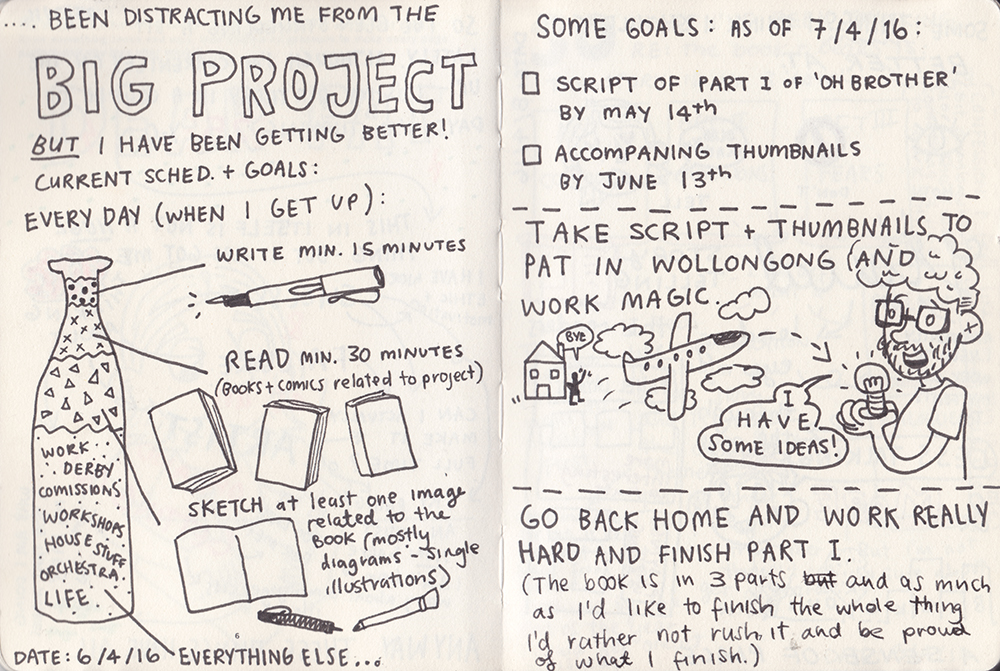 .... BEEN DISTRACTING ME FROM THE
BIG PROJECT
BUT I HAVE BEEN GETTING BETTER!
CURRENT SCHED. + GOALS:
EVERY DAY (WHEN I GET UP):
WRITE MIN. 15 MINUTES
READ MIN. 30 MINUTES
(Books + comics related to project)
WORK
DERBY
COMISSIONS
WORKSHOPS
HOUSE STUFF
ORCHESTRA.
LIFE.
SKETCH at least one image
related to the
Book (mostly
diagrams - single
illustrations)
DATE: 6/4/16
EVERYTHING ELSE...
SOME GOALS: AS OF 7/4/16:
SCRIPT OF PART I OF 'OH BROTHER'
BY MAY 14th
ACCOMPANING THUMBNAILS
BY JUNE 13th
TAKE SCRIPT + THUMBNAILS TO
PAT IN WOLLONGONG (AND)
WORK MAGIC.
BYE
I
HAVE
SOME IDEAS!
GO BACK HOME AND WORK REALLY
HARD AND FINISH PART I.
(The book is in 3 parts but and as much
as I'd like to finish the whole thing
I'd rather not rush it and be proud
of what I finish.)